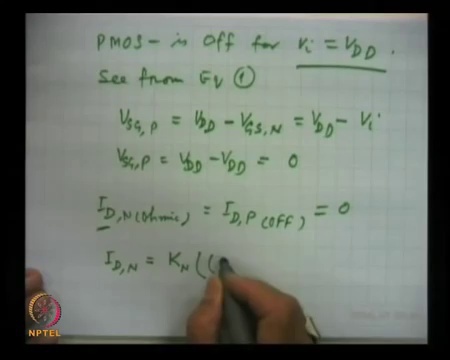 PMOS - is Off for Vi = VDD.
See from Eq ①
VSG,P = VDD - VGS,N = VDD - Vi
VSG,P = VDD - VDD = 0
ID,N(Ohmic) = ID,P(OFF) = 0
ID,N = KN [(
NPTEL